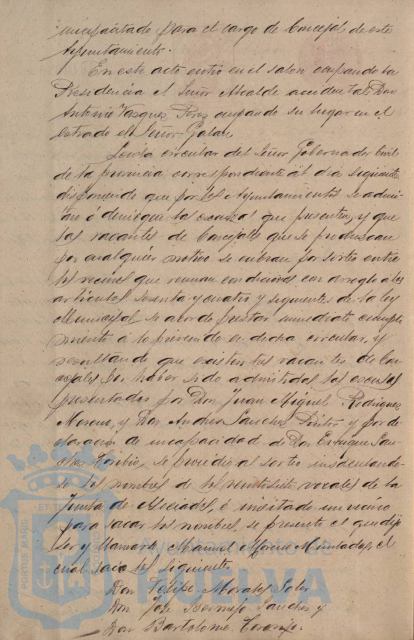 incapacitado para el cargo de Concejal de este
Ayuntamiento.
En este acto entró en el salon ocupando la
Presidencia el Señor Alcalde accidental Don
Antonio Vazquez Perez ocupando su lugar en el
estrado el Señor
circular del Señor Gobernador Civil
de la provincia correspondiente al dia siguiente
disponiendo que por los Ayuntamientos se admi-
tan ó denieguen las escusas que presenten, y que
las vacantes de Concejales que se produzcan
por cualquier motivo se cubran por sorteo entre
los vecinos que reunan condiciones con arreglo á los
articulos sesenta y cuatro y siguientes de la ley
Municipal se acordó prestar inmediato cumpli-
miento á lo prevenido en dicha circular, y
resultando que existen tres vacantes de Con-
cejales por haber sido admitidas las escusas
presentadas por Don Juan Miguel Rodriguez
Moreno, y Don Andres Sanchez Pintor y por de-
claracion de incapacidad de Don Enrique San-
se procedió al sorteo insaculando-
se los nombres de los veintisiete vocales de la
Junta de Asociados, é invitado un vecino
para sacar los nombres, se presentó el que dijo
ser y llamarse Manuel el
cual sacó los siguientes
Don Felipe Morales
Don José Bermejo Sanchez y
Don Bartolomé
Ayuntamiento de
HUELVA